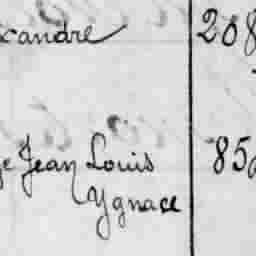 xandre 208
ge Jean Louis 85
Ygnace